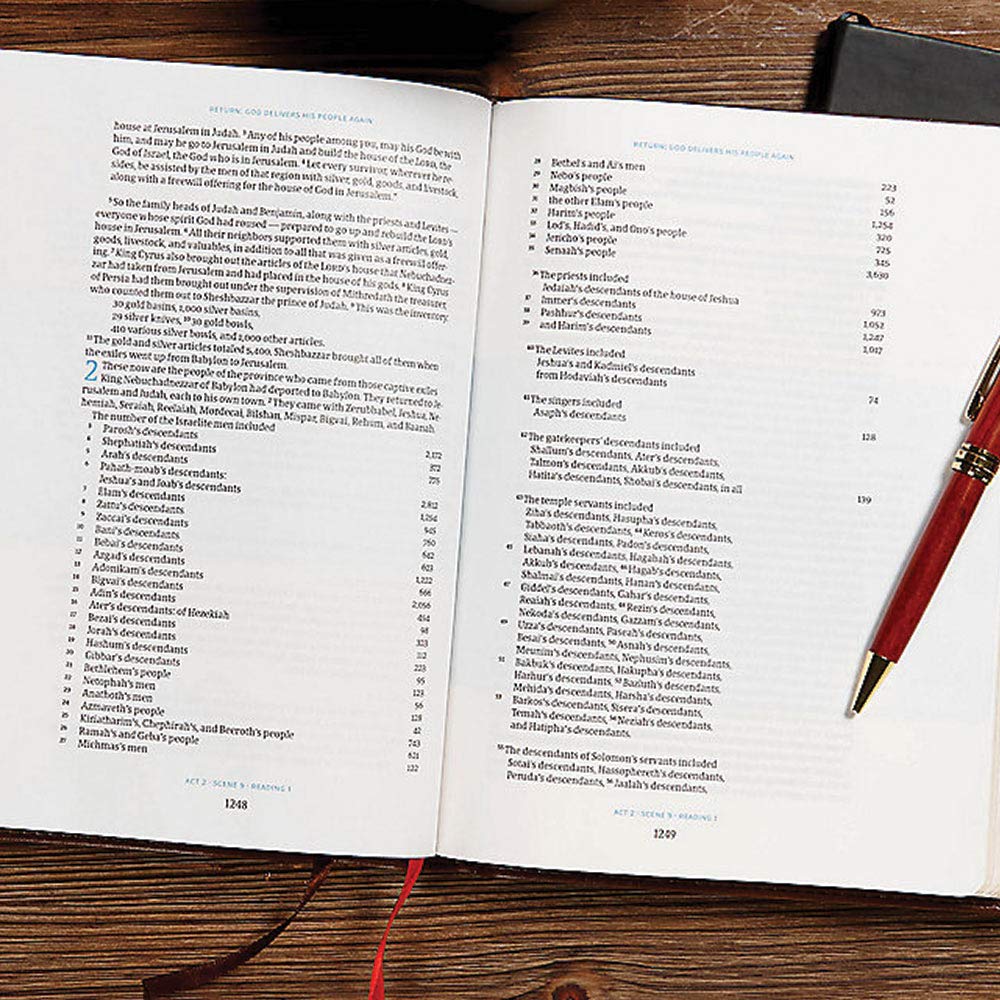 RETURN: GOD DELIVERS HIS PEOPLE AGAIN
house at Jerusalem in Judah. ³ Any of his people among you, may his God be with
him, and may he go to Jerusalem in Judah and build the house of the LORD, the
God of Israel, the God who is in Jerusalem. ⁴ Let every survivor, wherever he re-
sides, be assisted by the men of that region with silver, gold, goods, and livestock,
along with a freewill offering for the house of God in Jerusalem."
⁵ So the family heads of Judah and Benjamin, along with the priests and Levites —
everyone whose spirit God had roused — prepared to go up and rebuild the LORD's
house in Jerusalem. ⁶ All their neighbors supported them with silver articles, gold,
goods, livestock, and valuables, in addition to all that was given as a freewill offer-
ing. ⁷ King Cyrus also brought out the articles of the LORD's house that Nebuchadnez-
zar had taken from Jerusalem and had placed in the house of his gods. ⁸ King Cyrus
of Persia had them brought out under the supervision of Mithredath the treasurer,
who counted them out to Sheshbazzar the prince of Judah. ⁹ This was the inventory:
30 gold basins, 1,000 silver basins,
29 silver knives, ¹⁰ 30 gold bowls,
410 various silver bowls, and 1,000 other articles.
¹¹ The gold and silver articles totaled 5,400. Sheshbazzar brought all of them when
the exiles went up from Babylon to Jerusalem.
2 These now are the people of the province who came from those captive exiles
King Nebuchadnezzar of Babylon had deported to Babylon. They returned to Je-
rusalem and Judah, each to his own town. ² They came with Zerubbabel, Jeshua, Ne-
hemiah, Seraiah, Reelaiah, Mordecai, Bilshan, Mispar, Bigvai, Rehum, and Baanah.
The number of the Israelite men included
3 Parosh's descendants 2,172
4 Shephatiah's descendants 372
5 Arah's descendants 775
6 Pahath-moab's descendants:
Jeshua's and Joab's descendants 2,812
7 Elam's descendants 1,254
8 Zattu's descendants 945
9 Zaccai's descendants 760
10 Bani's descendants 642
11 Bebai's descendants 623
12 Azgad's descendants 1,222
13 Adonikam's descendants 666
14 Bigvai's descendants 2,056
15 Adin's descendants 454
16 Ater's descendants: of Hezekiah 98
17 Bezai's descendants 323
18 Jorah's descendants 112
19 Hashum's descendants 223
20 Gibbar's descendants 95
21 Bethlehem's people 123
22 Netophah's men 56
23 Anathoth's men 128
24 Azmaveth's people 42
25 Kiriatharim's, Chephirah's, and Beeroth's people 743
26 Ramah's and Geba's people 621
27 Michmas's men 122
ACT 2 · SCENE 9 · READING 1
1248
RETURN: GOD DELIVERS HIS PEOPLE AGAIN
28 Bethel's and Ai's men 223
29 Nebo's people 52
30 Magbish's people 156
31 the other Elam's people 1,254
32 Harim's people 320
33 Lod's, Hadid's, and Ono's people 725
34 Jericho's people 345
35 Senaah's people 3,630
³⁶ The priests included
Jedaiah's descendants of the house of Jeshua 973
37 Immer's descendants 1,052
38 Pashhur's descendants 1,247
39 and Harim's descendants 1,017
⁴⁰ The Levites included
Jeshua's and Kadmiel's descendants
from Hodaviah's descendants 74
⁴¹ The singers included
Asaph's descendants 128
⁴² The gatekeepers' descendants included
Shallum's descendants, Ater's descendants,
Talmon's descendants, Akkub's descendants,
Hatita's descendants, Shobai's descendants, in all 139
⁴³ The temple servants included
Ziha's descendants, Hasupha's descendants,
Tabbaoth's descendants, ⁴⁴ Keros's descendants,
Siaha's descendants, Padon's descendants,
45 Lebanah's descendants, Hagabah's descendants,
Akkub's descendants, ⁴⁶ Hagab's descendants,
Shalmai's descendants, Hanan's descendants,
47 Giddel's descendants, Gahar's descendants,
Reaiah's descendants, ⁴⁸ Rezin's descendants,
Nekoda's descendants, Gazzam's descendants,
49 Uzza's descendants, Paseah's descendants,
Besai's descendants, ⁵⁰ Asnah's descendants,
Meunim's descendants, Nephusim's descendants,
51 Bakbuk's descendants, Hakupha's descendants,
Harhur's descendants, ⁵² Bazluth's descendants,
Mehida's descendants, Harsha's descendants,
53 Barkos's descendants, Sisera's descendants,
Temah's descendants, ⁵⁴ Neziah's descendants,
and Hatipha's descendants.
⁵⁵ The descendants of Solomon's servants included
Sotai's descendants, Hassophereth's descendants,
Peruda's descendants, ⁵⁶ Jaalah's descendants,
ACT 2 · SCENE 9 · READING 1
1249